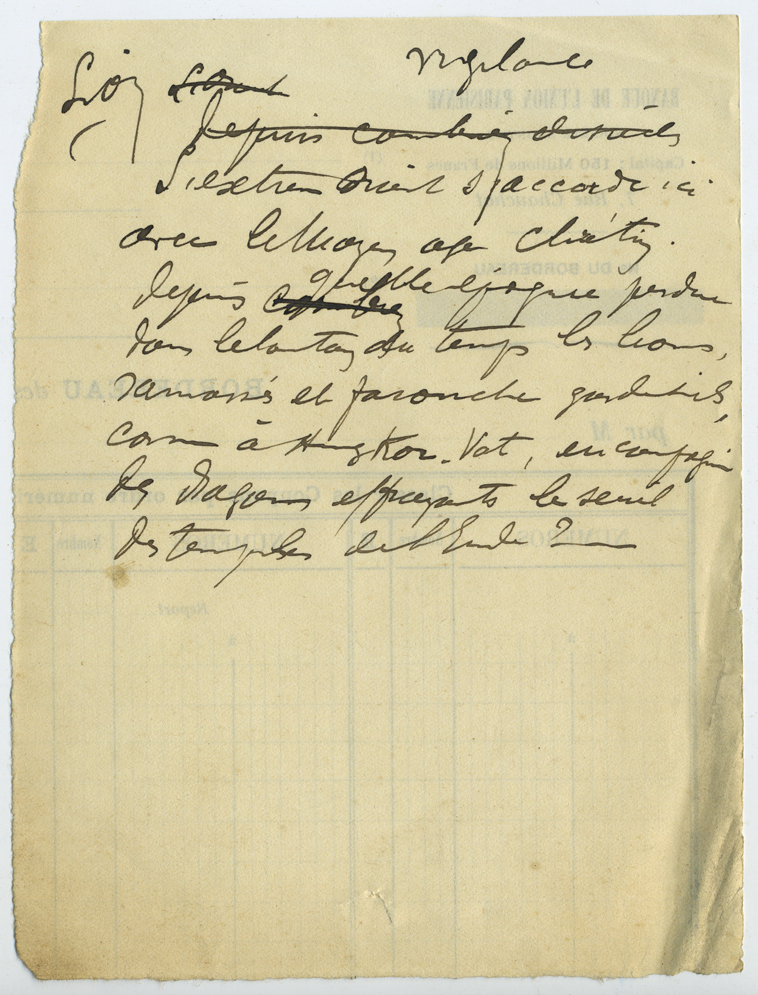 Vigilance
Lion
Depuis combien de siècles
L'extrem Orient s'accorde ici
avec le Moyen age Chrétien.
depuis quelle époque perdue
dans le lointain du temps les lions,
ramassés et farouche gardent-ils,
comme à Angkor-Vat, en compagnie
des dragons effrayants le seuil
des temples de l'Inde ?
BANQUE DE L'UNION PARISIENNE
Capital : 150 Millions de Francs
7, Rue Chauchat
DU BORDEREAU
BORDEREAU des
par M
NUMÉROS
Nombre
NUMÉROS
Report
à
à